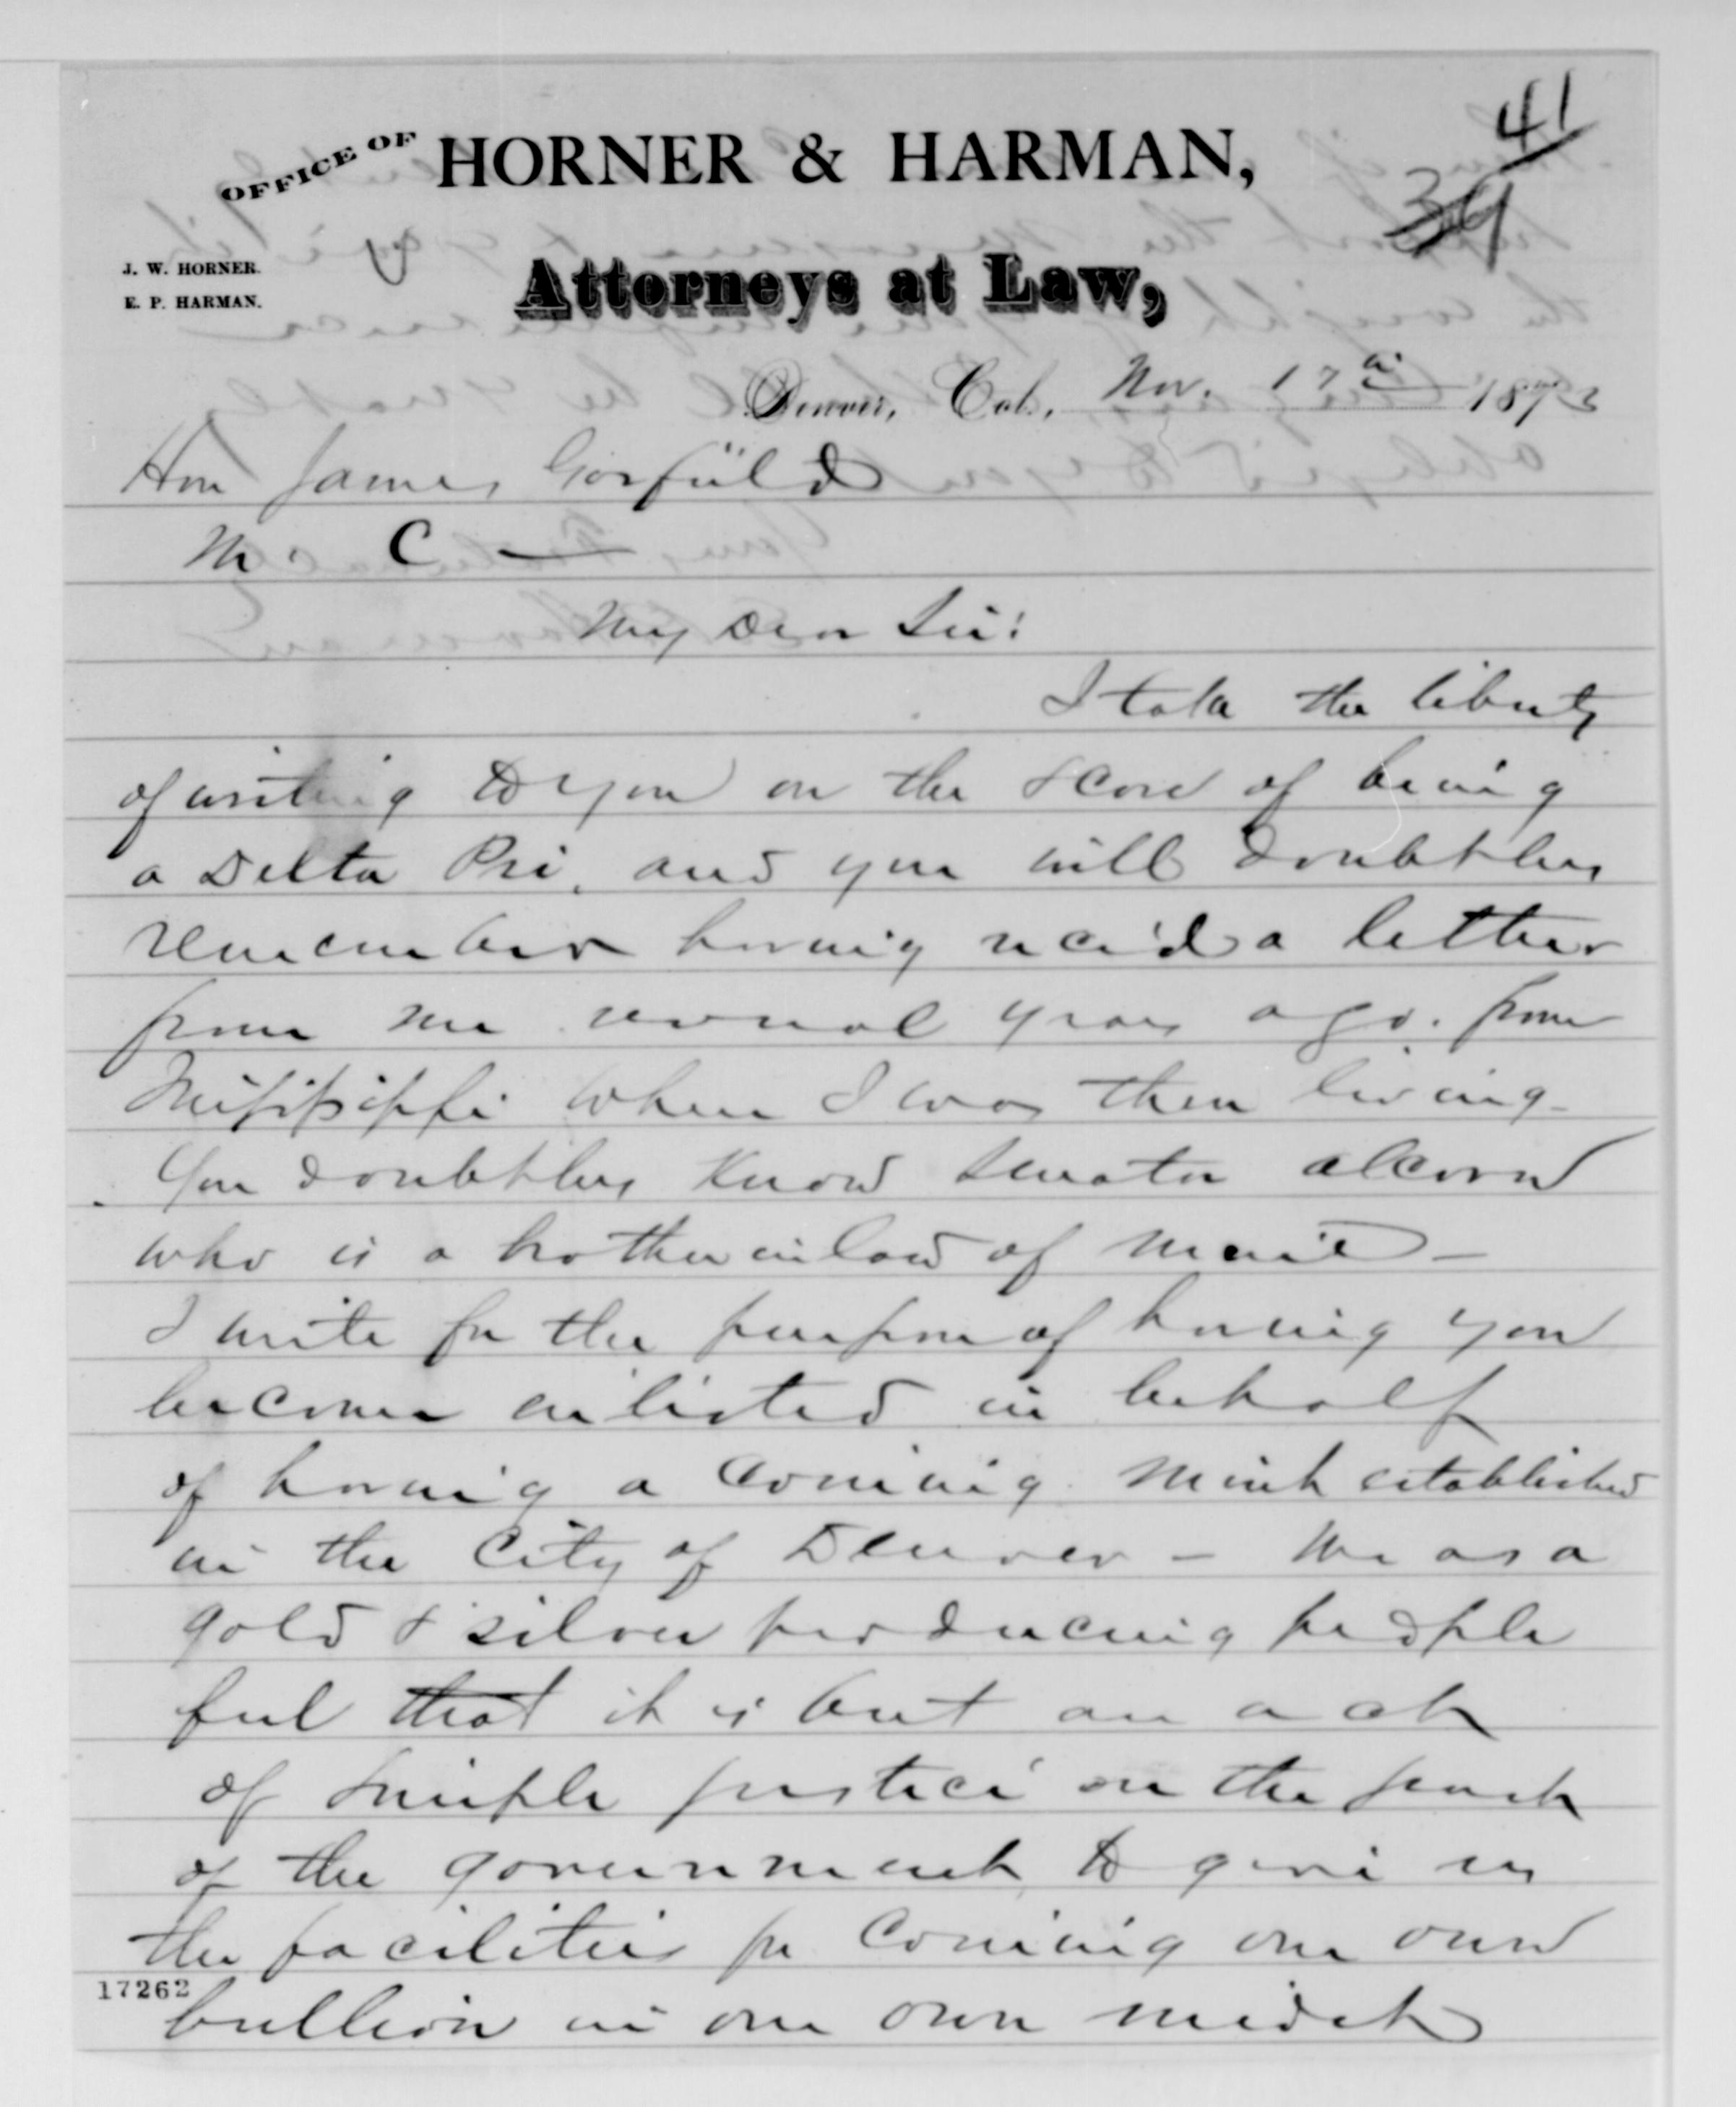 41
39
OFFICE OF HORNER & HARMAN,
J. W. HORNER.
E. P. HARMAN.
Attorneys at Law,
Denver, Col., Nov. 17th 1873
Hon James Garfield
M. C —
My Dear Sir:
I take the liberty
of writing to you on the score of being
a Delta Psi, and you will doubtless
remember having rec'd a letter
from me several years ago. from
Mississippi where I was then living-
You doubtless know Senator Alcorn
who is a brother in law of mine —
I write for the purpose of having you
become enlisted in behalf
of having a coining mint established
in the City of Denver - We as a
gold & silver producing people
feel that it is but an act
of simple justice on the part
of the government to give us
the facilities for coining our own
17262
bullion in our own midst